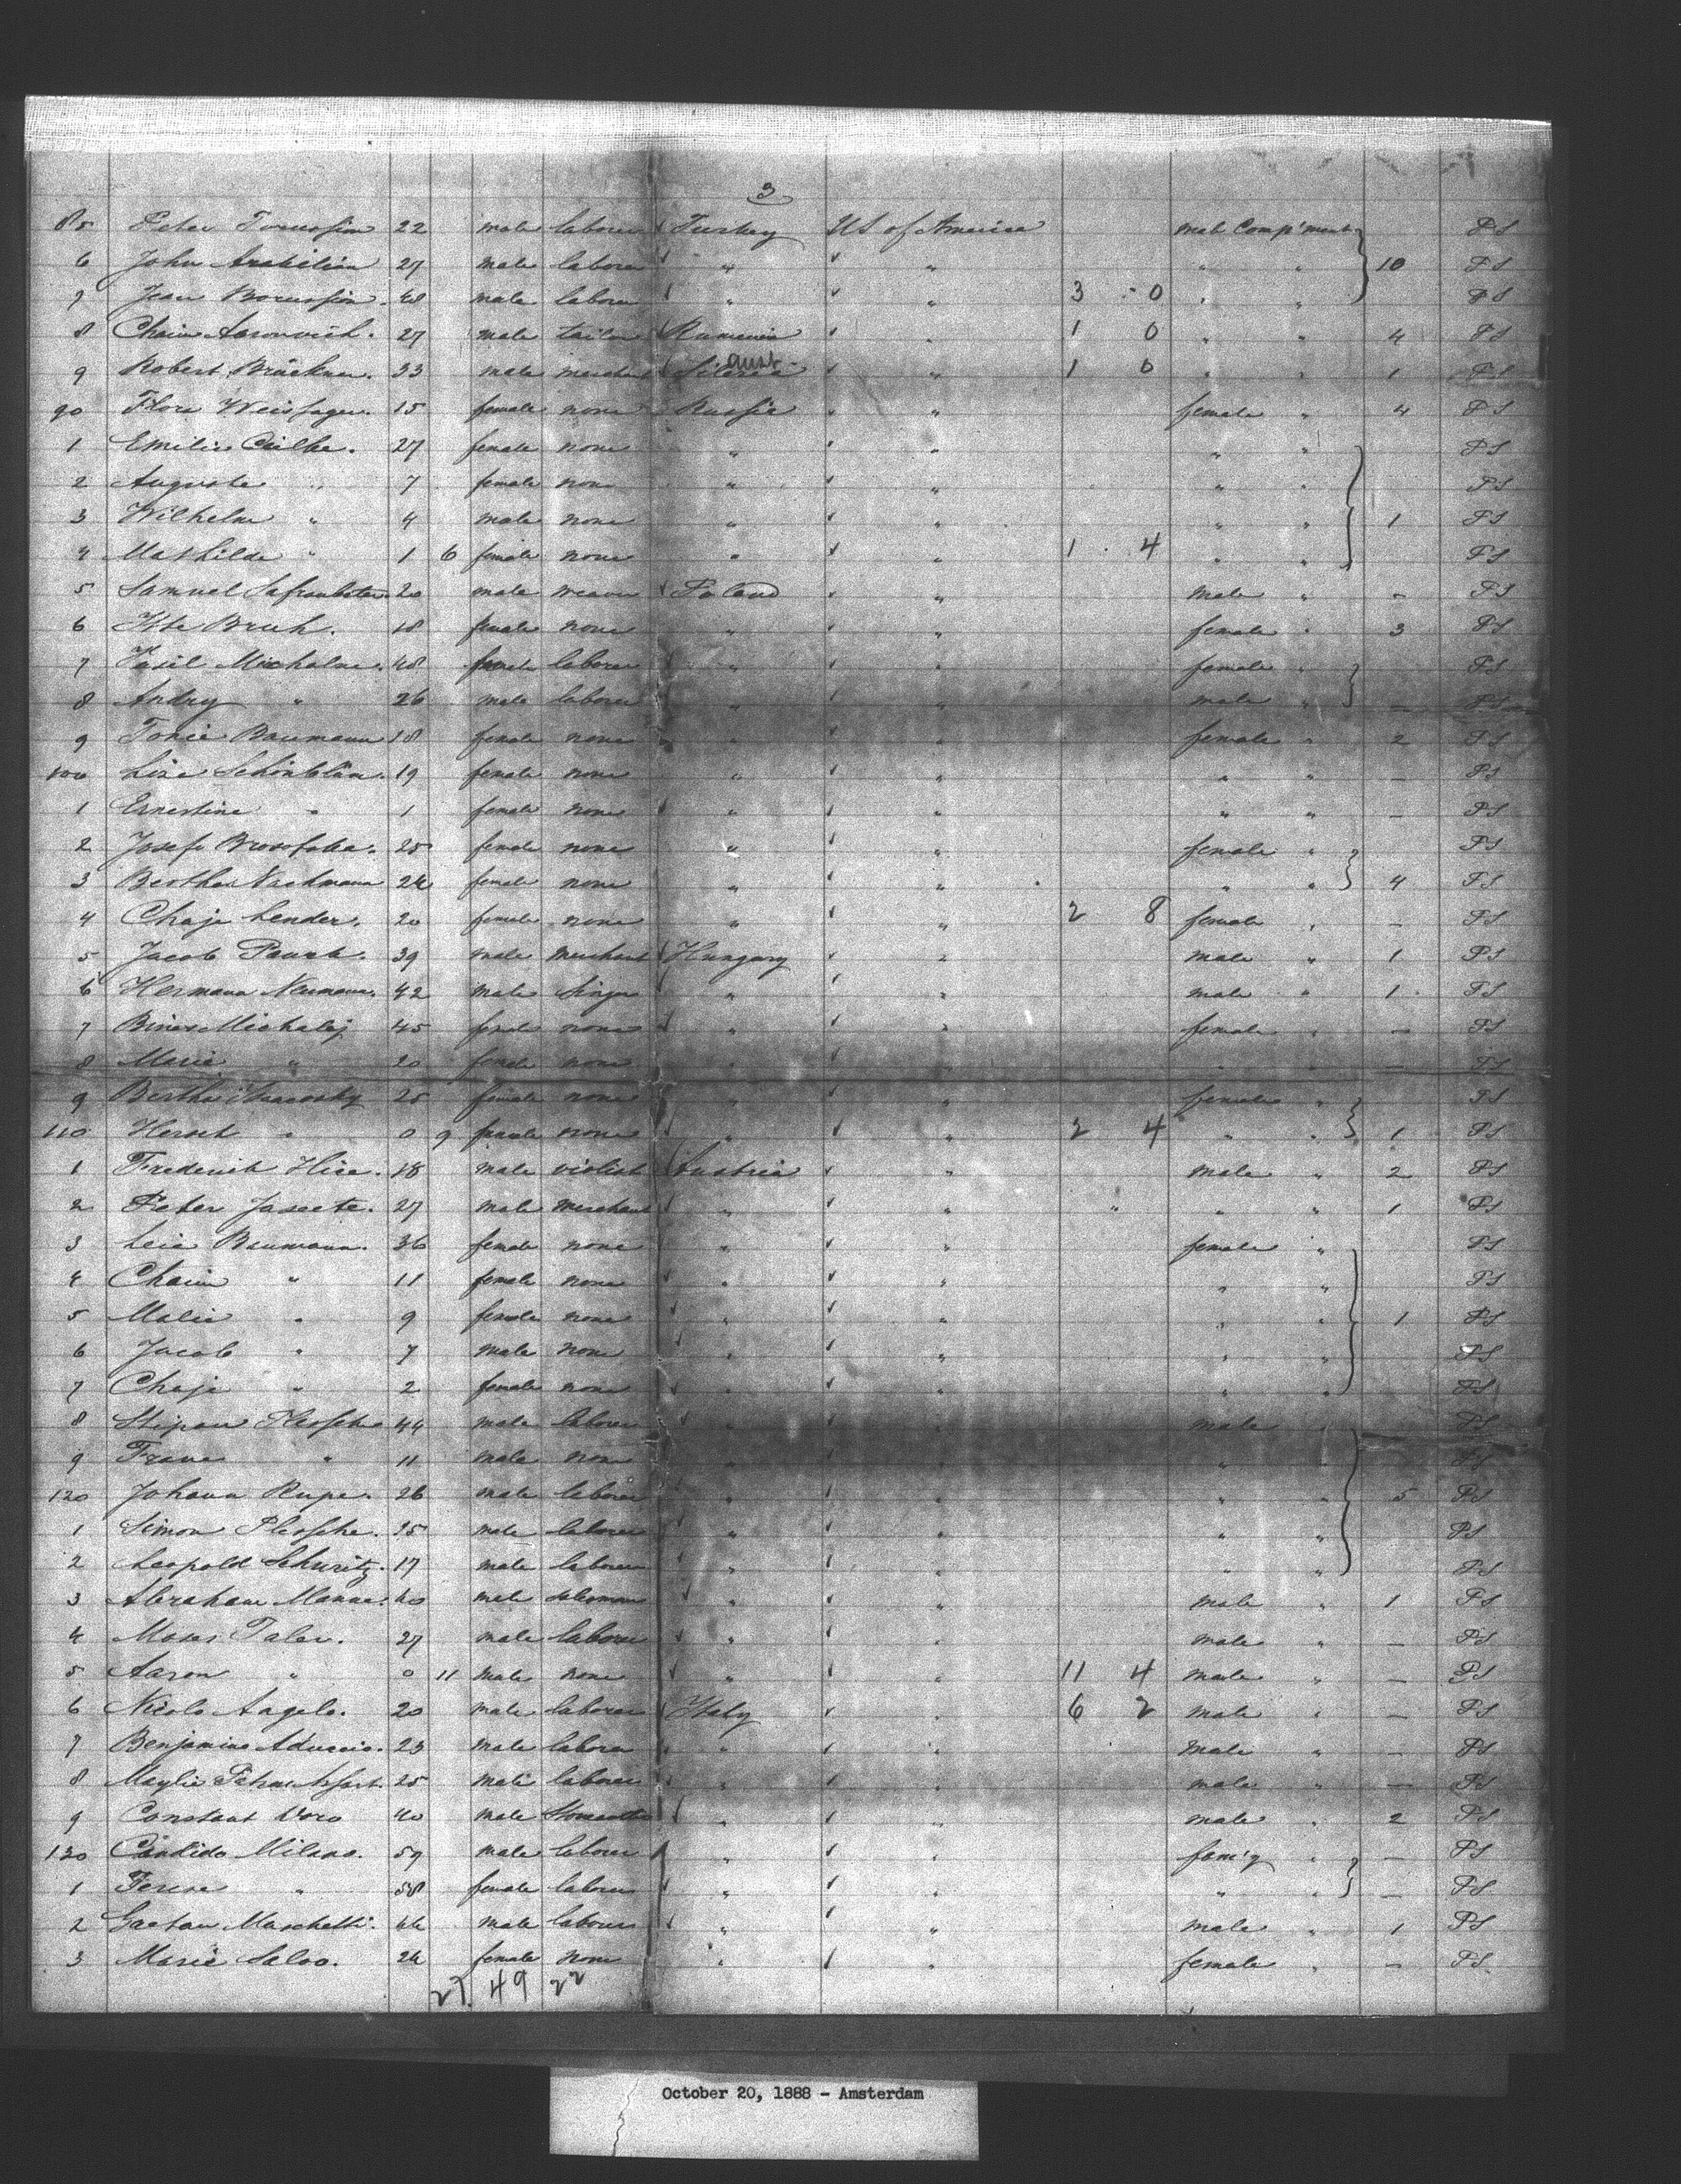 3
85 Peter 22 male laborer Turkey US of America male Comp'ment PS
6 John Arakilian 27 male laborer " " " " 10 PS
7 Jean 48 male laborer " " 3 0 " " PS
8 Chaim 27 male tailor Rumenia " 1 0 " " 4 PS
9 Robert Brückner. 33 male merchant Silesia aust " 1 0 " " 1 PS
90 Flora 15 female none Russia " female " 4 PS
1 Emilie 27 female none " " " " PS
2 Auguste " 7 female none " " " " PS
3 Wilhelm " 4 male none " " " " 1 PS
4 Mathilde " 1 6 female none " " 1 4 " " PS
5 Samuel 20 male weaver Poland " male " – PS
6 Bruh. 18 female none " " female " 3 PS
7 48 female laborer " " female " PS
8 Andry " 26 male laborer " " male " – PS
9 Baumann 18 female none " " female " 2 PS
100 Lise 19 female none " " " " – PS
1 Ernestine " 1 female none " " " " – PS
2 Josefe 25 female none " " female " PS
3 Bertha Nachmann 24 female none " " " " 4 PS
4 Chaje Lender. 20 female none " " 2 8 female " – PS
5 Jacob 39 male merchant Hungary " male " 1 PS
6 Hermann Neumann. 42 male Singer " " male " 1 PS
7 Michalej 45 female none " " female " – PS
8 Marie " 20 female none " " " " – PS
9 Bertha 25 female none " " female " PS
110 Hersch " 0 9 female none " " 2 4 " " 1 PS
1 Frederich 18 male violist Austria " male " 2 PS
2 Peter 27 male merchant " " " " 1 PS
3 Leie Baumann. 36 female none " " female " PS
4 Chaim " 11 female none " " " " PS
5 Malie " 9 female none " " " " 1 PS
6 Jacob " 7 male none " " " " PS
7 Chaje " 2 female none " " " " PS
8 Stipan 44 male laborer " " male " PS
9 Frane " 11 male none " " " " PS
120 Johann Rupe. 26 male laborer " " " " 5 PS
1 Simon 25 male laborer " " " " PS
2 Leopold 17 male laborer " " " " PS
3 Abraham 40 male salesman " " male " 1 PS
4 Moses Taler. 27 male laborer " " male " – PS
5 Aaron " 0 11 male none " " 11 4 male " – PS
6 Nicolo Angelo. 20 male laborer Italy " 6 2 male " – PS
7 Benjamino 23 male laborer " " male " – PS
8 25 male laborer " " male " – PS
9 Constant 40 male " " male " 2 PS
130 Candido Milano. 59 male laborer " " fam'y " – PS
1 Terese " 58 female laborer " " " " – PS
2 Gaetan Marchetti. 44 male laborer " " male " 1 PS
3 Marie Salvo. 24 female none " " female " – PS
27. 49 22
October 20, 1888 - Amsterdam